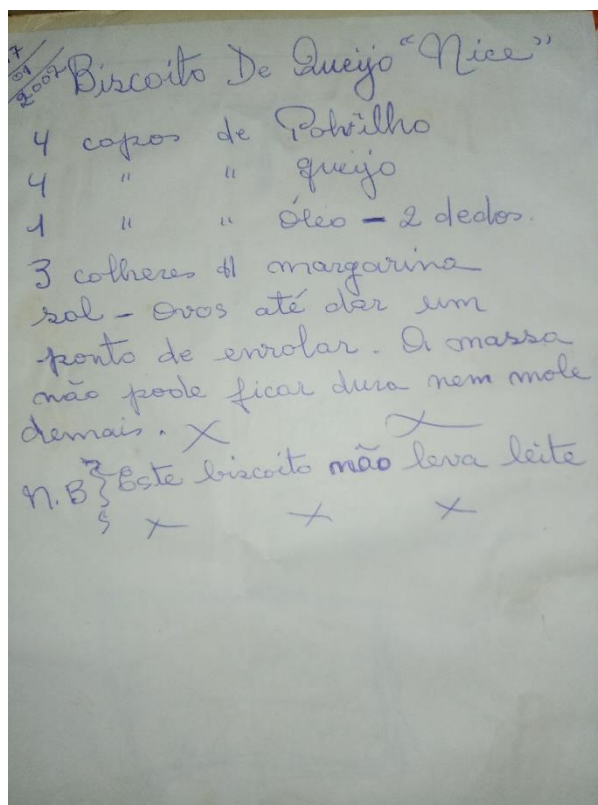 17/01/2007
Biscoito De Queijo "Nice"
4 copos de Polvilho
4 " " queijo
1 " " Óleo - 2 dedos.
3 colheres margarina
sal - Ovos até dar um
ponto de enrolar. A massa
não pode ficar dura nem mole
demais. X X
N.B } Este biscoito não leva leite
X X X